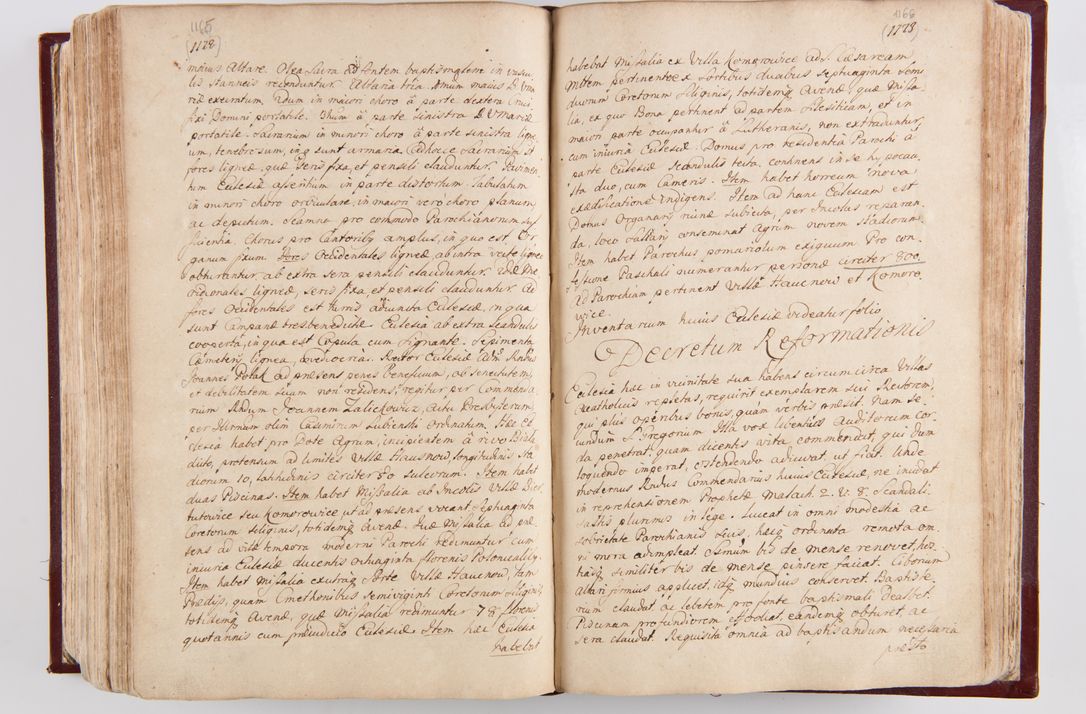 1165
(1172)
maius Altare. Olea Sacra ad fontem baptismalem in vascu-
lis stanneis reconduntur. Altaria tria. Imum maius B. Vir.
riæ execratum, IIdum in maiori choro à parte dextera Cruci
fixi Domini portatile. IIItium à parte sinistra B. V. Mariæ
portatile. Sacrarium in minori choro à parte sinistra ligne-
um, tenebrosum, in quo sunt armaria. Ad hocce Sacrarium
fores ligneæ, quæ seris fixa, et pensili clauduntur. Pavimen-
tum Ecclesiæ asseritium in parte distortum. Tabulatum
in minori choro orbiculare, in maiori vero choro planum,
ac depictum. Scamna pro commodo Parochianorum suf-
ficientia. Chorus pro Cantoribus amplus, in quo est Or-
ganum fixum. Fores Occidentales ligneæ, ab intra vecte ligneo
obturantur, ab extra sera pensili clauduntur. Aliæ Me-
ridionales ligneæ, seris fixa, et pensili clauduntur. Ad
fores Occidentales est turris adiuncta Ecclesiæ, in qua
sunt Campanæ tres benedictæ. Ecclesia ab extra scandulis
cooperta, in qua est Copula cum Signante. Sepimenta
Cæmeterij lignea, mediocria. Rector Ecclesiæ
Joannes Polak ad præsens penes Beneficium, ob senectutem,
et debilitatem suam non residens, regitur per Commenda-
rium Rndum Joannem Zalickowicz, actu Presbyterum,
per Illmum olim Casimirum Łubienski Ordinatum. Hæc Ec-
clesia habet pro Dote Agrum, incipientem à rivo Biala
dicto, protensum ad limites Villæ Hausnow longitudinis sta-
diorum 10, latitudinis circiter 80 sulcorum. Item habet
duas Piscinas. Item habet Missalia ab Incolis Villæ Biers-
tutowice seu Komorowice ut ad præsens vocant, septuaginta
Coretorum siliginis, totidemque Avenæ. Quæ Missalia ad præ-
sens ad vitæ tempora moderni Parochi redimuntur cum
iniuria Ecclesiæ ducentis octuaginta florenis Polonicalibus.
Item habet Missalia ex utraque sorte Villæ Haucnow, tam
Prædijs, quam Cmethonibus semiviginti Coretorum siliginis,
totidemque Avenæ, quæ Missalia redimuntur 78 florenis
quotannis cum præiudicio Ecclesiæ. Item hæc Ecclesia
habebat
1166
(1173)
habebat Missalia ex Villa Komorowice ad S. Cæsaream
Mttem pertinente ex sortibus duabus septuaginta
duorum Coretorum siliginis, totidemque Avenæ, quæ Missa-
lia, ex quo Bona pertinent ad partem Silesiticam, et in
maiori parte occupantur à Lutheranis, non extraduntur,
cum iniuria Ecclesiæ. Domus pro residentia Parochi à
parte Ecclesiæ scandulis tecta, continens in se hypocau-
sta duo, cum Cameris. Item habet horreum nova
exædificatione indigens. Item ad hanc Ecclesiam est
Domus Organarij ruinæ subiecta, per Incolas reparan-
da, loco Sallarij conseminat Agrum novem stadiorum.
Item habet Parochus pomariolum exiguum. Pro con-
fessione Paschali numerantur personæ circiter 800.
Ad Parochiam pertinent Villæ Haucnow et Komoro-
wice.
Inventarium huius Ecclesiæ videatur folio
Decretum Reformationis
Ecclesia hæc in vicinitate sua habens circumcirca Villas
Acatholicis repletas, requirit exemplarem sui Rectorem,
qui plus operibus bonis, quam verbis præsit. Nam se-
cundum S. Gregorium Illa vox libentius auditorum cor-
da penetrat, quam dicentis vita commendat, qui dum
loquendo imperat, ostendendo adiuvat ut fiat. Unde
modernus Rndus Commendarius huius Ecclesiæ, ne incidat
in reprehensionem Prophetæ Malach. 2. V. 8. Scandali-
sastis plurimos in lege. Luceat in omni modestia ac
sobrietate Parochianis suis, hæcque ordinata remota om-
ni mora adimpleat. Asmum bis de mense renovet, hos-
tiasque similiter bis de mense pinsere faciat. Cibonum
Altari firmius applicet, idque mundius conservet. Baptiste-
rium claudat, ac lebetem pro fonte baptismali dealbet.
Piscinam profundiorem effodiat, eandemque obturet ac
sera claudat. Requisita omnia ad baptisandum necessaria
præsto